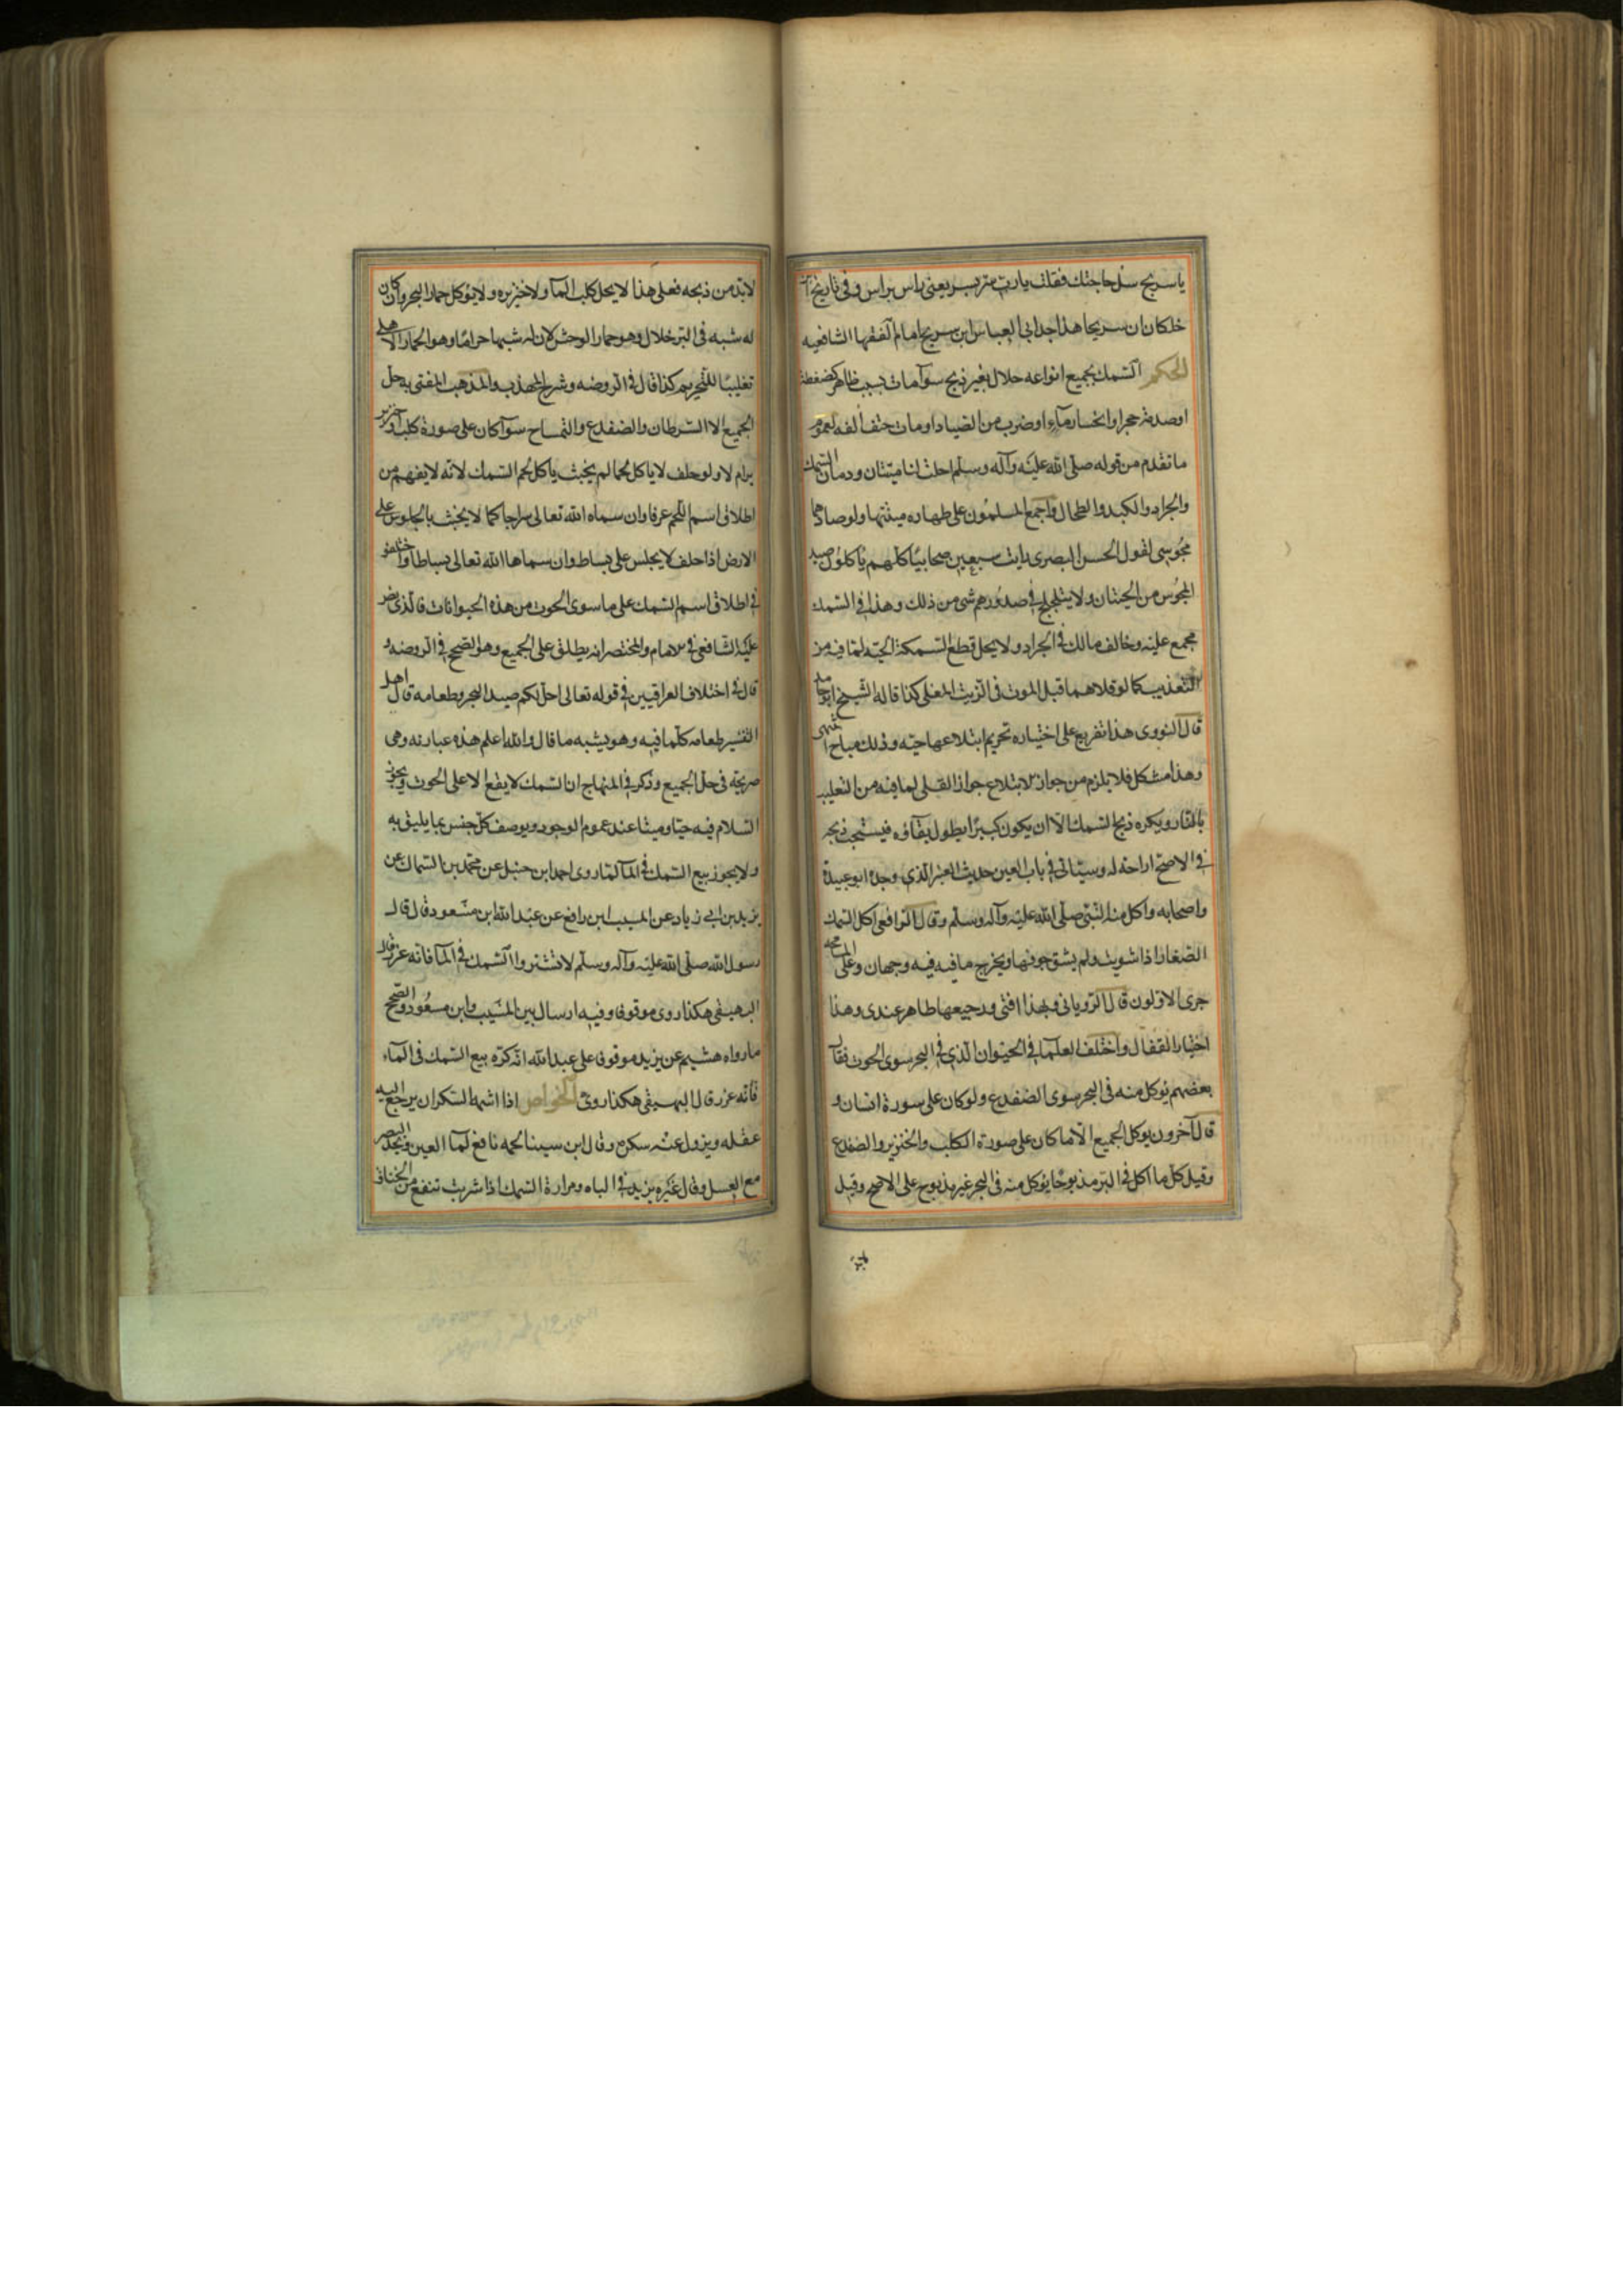 يا سريج سل حاجتك فقلت يا رب سر بسر يعنى راس براس وفى تاريخ ابن
خلكان ان سريجا هذا جد ابى العباس ابن سريج امام الفقها الشافعيه
الحكم السمك بجميع انواعه حلال بغير ذبح سوآ مات بسبب ظاهر كضغطة
او صدمة حجر او انحسار مآء او ضرب من الصياد او مات حتف انفه لعموم
ما تقدم من قوله صلّى الله عليه وآله وسلّم احلت لنا ميتتان ودمان السمك
والجراد والكبد والطحال واجمع المسلمون على طهاره ميتتها ولو صادها
مجوسى لقول الحسن البصرى رايت سبعين صحابيّا كلهم ياكلون صيد
المجوس من الحيتان ولا يتلجلج فى صدورهم شى من ذلك وهذا فى السمك
مجمع عليه وخالف مالك فى الجراد ولا يحل قطع السمكة الحيّه لما فيه من
التعذيب كما لو قلاهما قبل الموت فى الزيت المغلى كذا قاله الشيخ ابو حامد
قال النووى هذا تفريع على اختياره تحريم ابتلاعها حيّه وذلك مباح انتهى
وهذا مشكل فلا يلزم من جواز الابتلاع جواز القلى لما فيه من التعذيب
بالنار ويكره ذبح السمك الا ان يكون كبيرا يطول بقاؤه فيستحب ذبحه
فى الاصح اراحة له وسياتى فى باب العين حديث العنبر الذى وجده ابو عبيدة
واصحابه واكل منه النبى صلّى الله عليه وآله وسلم وقال الرافعى اكل السمك
الصغار اذا شويت ولم يشق جوفها ويخرج ما فيه فيه وجهان وعلى المسامحه
جرى الاولون قال الرويانى وبهذا افتى ورجيعها طاهر عندى وهذا
اختيار القفال واختلف العلما فى الحيوان الذى فى البحر سوى الحوت فقال
بعضهم يوكل منه فى البحر سوى الضفدع ولو كان على سورة انسان و
قال آخرون يوكل الجميع الا ما كان على صورة الكلب والخنزير والضفدع
وقيل كل ما اكل فى البر مذبوحا يوكل منه فى البحر غير مذبوح على الاصح وقيل
لا بد من ذبحه فعلى هذا لا يحل كلب المآ ولا خنزيره ولا يوكل حمار البحر وان كان
له شبه فى البر حلال وهو حمار الوحش لان له شبها حراما وهو الحمار الاهلى
تغليبا للتحريم كذا قال فى الروضه وشرح المهذب والمذهب المفتى به حل
الجميع الا السرطان والضفدع والتمساح سوآ كان على صورة كلب او خنزير
برام لا ولو حلف لا ياكل لحما لم يحنث ياكل لحم السمك لانه لا يفهم من
اطلاق اسم اللحم عرفا وان سماه الله تعالى سراجا كما لا يحنث بالجلوس على
الارض اذا حلف لا يجلس على بساط وان سماها الله تعالى بساطا واختلفو
فى اطلاق اسم السمك على ما سوى الحوت من هذه الحيوانات فالذى نص
عليه الشافعى فى الامام والمختصر انه يطلق على الجميع وهو الصحيح فى الروضه و
قال فى اختلاف العراقيين فى قوله تعالى احل لكم صيد البحر وطعامه قال اهل
التفسير طعامه كلما فيه وهو يشبه ما قال والله اعلم هذه عبارته وهى
صريحة فى حل الجميع وذكر فى المنهاج ان السمك لا يقع الا على الحوت ويجوز
السلام فيه حيّا وميتا عند عموم الوجود ويوصف كل جنس بما يليق به
ولا يجوز بيع السمك فى المآ لما روى احمد ابن حنبل عن محمد بن السماك عن
يزيد بن ابى زياد عن المسيب ابن رافع عن عبد الله ابن مسعود قال قال
رسول الله صلّى الله عليه وآله وسلّم لا تشتروا السمك فى المآ فانه غرر قال
البيهقى هكذا روى موقوفا وفيه ارسال بين المسيب وابن مسعود والصحيح
ما رواه هشيم عن يزيد موقوفا على عبد الله انه كره بيع السمك فى المآء
فانه غرر قال البيهقى هكذا روى الخواص اذا اشمها السكران يرجع اليه
عقله ويزول عنه سكره وقال ابن سينا لحمه نافع لمآ العين ويحد البصر
مع العسل وقال غيره يزيد فى الباه ومرارة السمك اذا شربت تنفع من الخناق
لابد